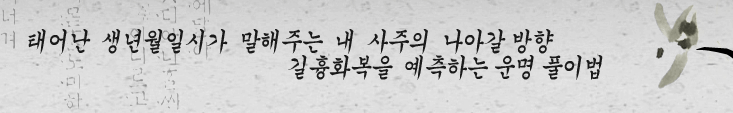 태어난 생년월일시가 말해주는 내 사주의 나아갈 방향
길흉화복을 예측하는 운명 풀이법